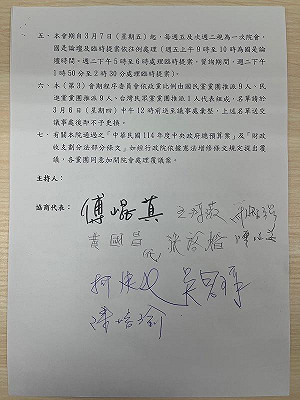 五、本會期自3月7日（星期五）起，每週五及次週二視為一次院會，
國是論壇及臨時提案依往例處理（週五上午9時至10時為國是論
壇時間，週二下午5時至6時處理臨時提案），質詢期間，週二下午
1時50分至2時30分處理臨時提案）。
六、本（第3）會期程序委員會依政黨比例由國民黨黨團推派9人、民
進黨黨團推派9人、台灣民眾黨黨團推派1人代表組成，名單請於
3月6日（星期四）中午12時前送至議事處彙整，上述名單送交
議事處後即不予更換。
七、有關本院通過之「中華民國114年度中央政府總預算案」及「財政
收支劃分法部分條文」如經行政院依憲法增修條文規定提出覆
議，各黨團同意加開院會處理覆議案。
主持人：
協商代表：傅崐萁
黃國昌 張啓楷
吳思瑤
陳培瑜